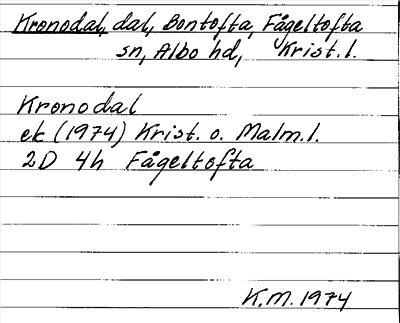 Kronodal, dal, Bontofta, Fågeltofta
sn, Albo hd, Krist.l.
Kronodal
ek (1974) Krist. o. Malm.l.
2D 4h Fågeltofta
K.M. 1974